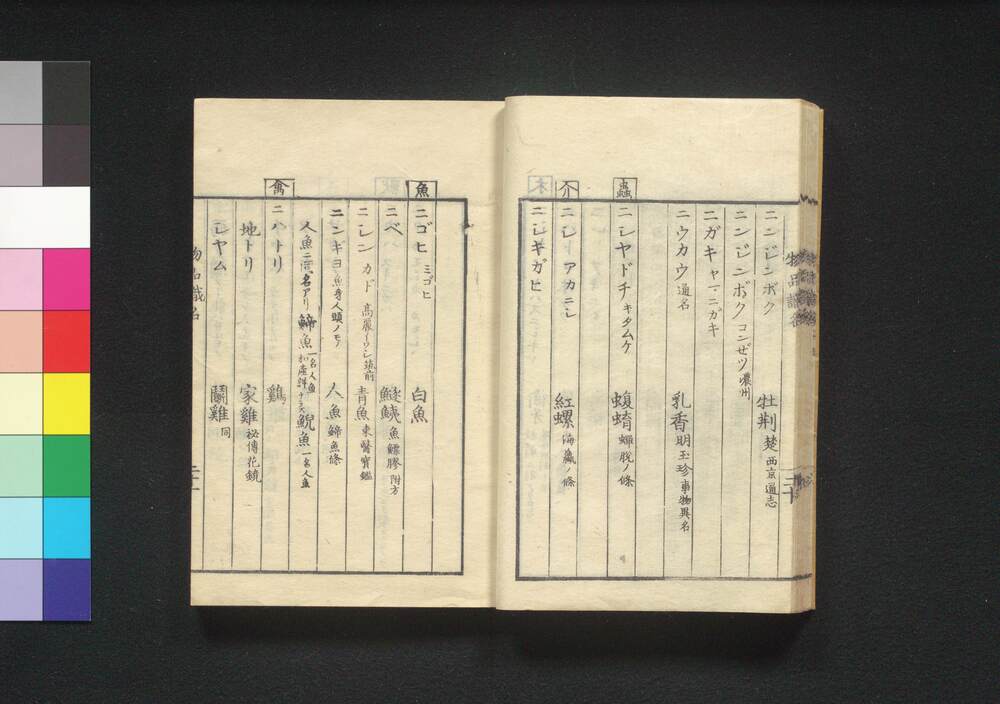 ニンジンボク 牡荊 楚 西京通志
ニンジンボク コンゼツ 濃州
ニガキヤ ニガキ
ニウカウ 通名 乳香 明玉珍 事物異名
蟲
ニシヤドチ キタムケ 蝜蝫 蟬脱ノ條
介
ニシ アカニシ 紅螺 海蠃ノ條
木
ニシキガヒ
物品識名
二十
魚
ニゴヒ ミゴヒ 白魚
ニベ 鱁鮧 魚鰾膠 附方
ニシン カド 高麗イワシ 筑前 青魚 東醫寶鑑
ニンギヨ 魚身人頭ノモノ 人魚 鯑魚條
人魚ニ二名アリ 鯑魚 一名人魚 鯢魚 一名人魚
禽
ニハトリ 鷄
地トリ 家雞 祕傳花鏡
シヤム 鬪雞 同
物品識名